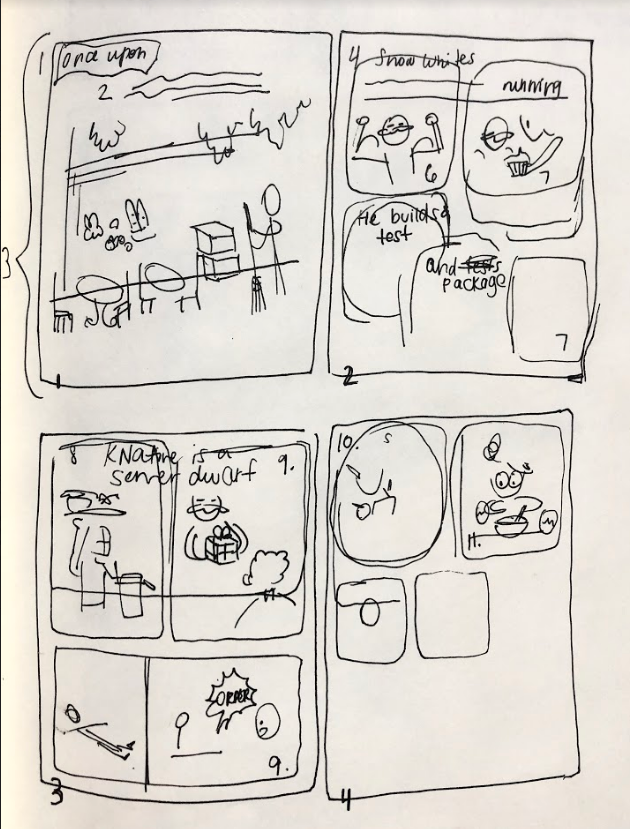 1
once upon
2
3
1
4 Snow whites
running
6
7
He builds a
test
and tests
package
7
2
8 KNative is a
server dwarf
9.
ORDER
9.
3
10.
S
11.
4